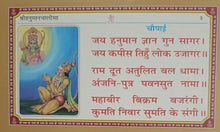 श्रीहनुमानचालीसा
३
चौपाई
जय हनुमान ज्ञान गुन सागर।
जय कपीस तिहुँ लोक उजागर॥
राम दूत अतुलित बल धामा।
अंजनि-पुत्र पवनसुत नामा॥
महाबीर बिक्रम बजरंगी।
कुमति निवार सुमति के संगी॥